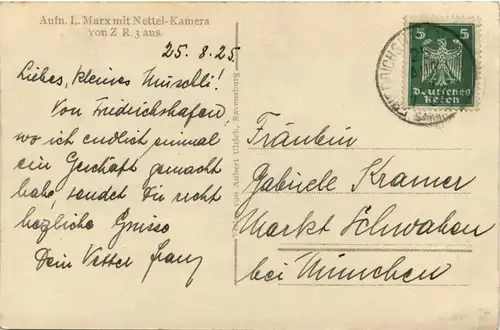 Aufn. L. Marx mit Nettel-Kamera
von Z R. 3 aus.
25. 8. 25
Liebes, kleines Muschli!
Von Friedrichshafen,
wo ich endlich einmal
ein Geschäft gemacht
habe, sendet Dir recht
herzliche Grüsse
Dein Vetter Franz
von Aubert Ulrich, Ravensburg
5 5
Deutsches
Reich
FRIEDRICHSH
Fräulein
Gabriele Kramer
Markt Schwaben
bei München